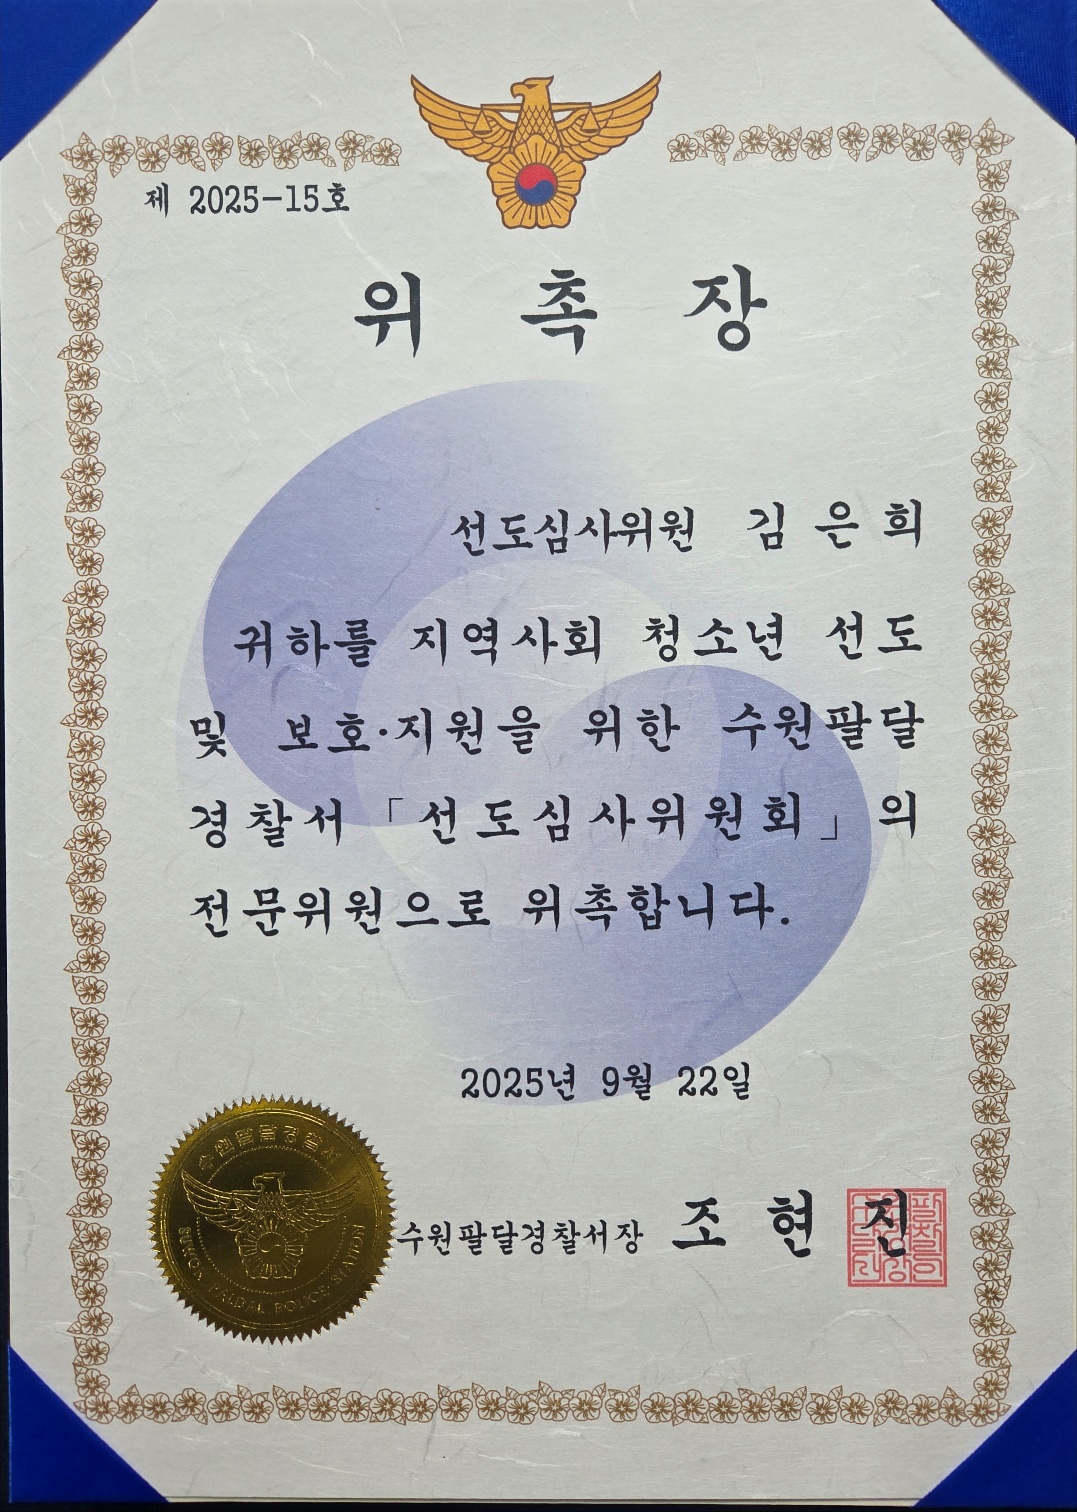 제 2025-15호
위 촉 장
선도심사위원 김 은 희
귀하를 지역사회 청소년 선도
및 보호·지원을 위한 수원팔달
경찰서 「선도심사위원회」의
전문위원으로 위촉합니다.
2025년 9월 22일
수원팔달경찰서장 조 현 진
수원팔달경찰서
SUWON PALDAL POLICE STATION